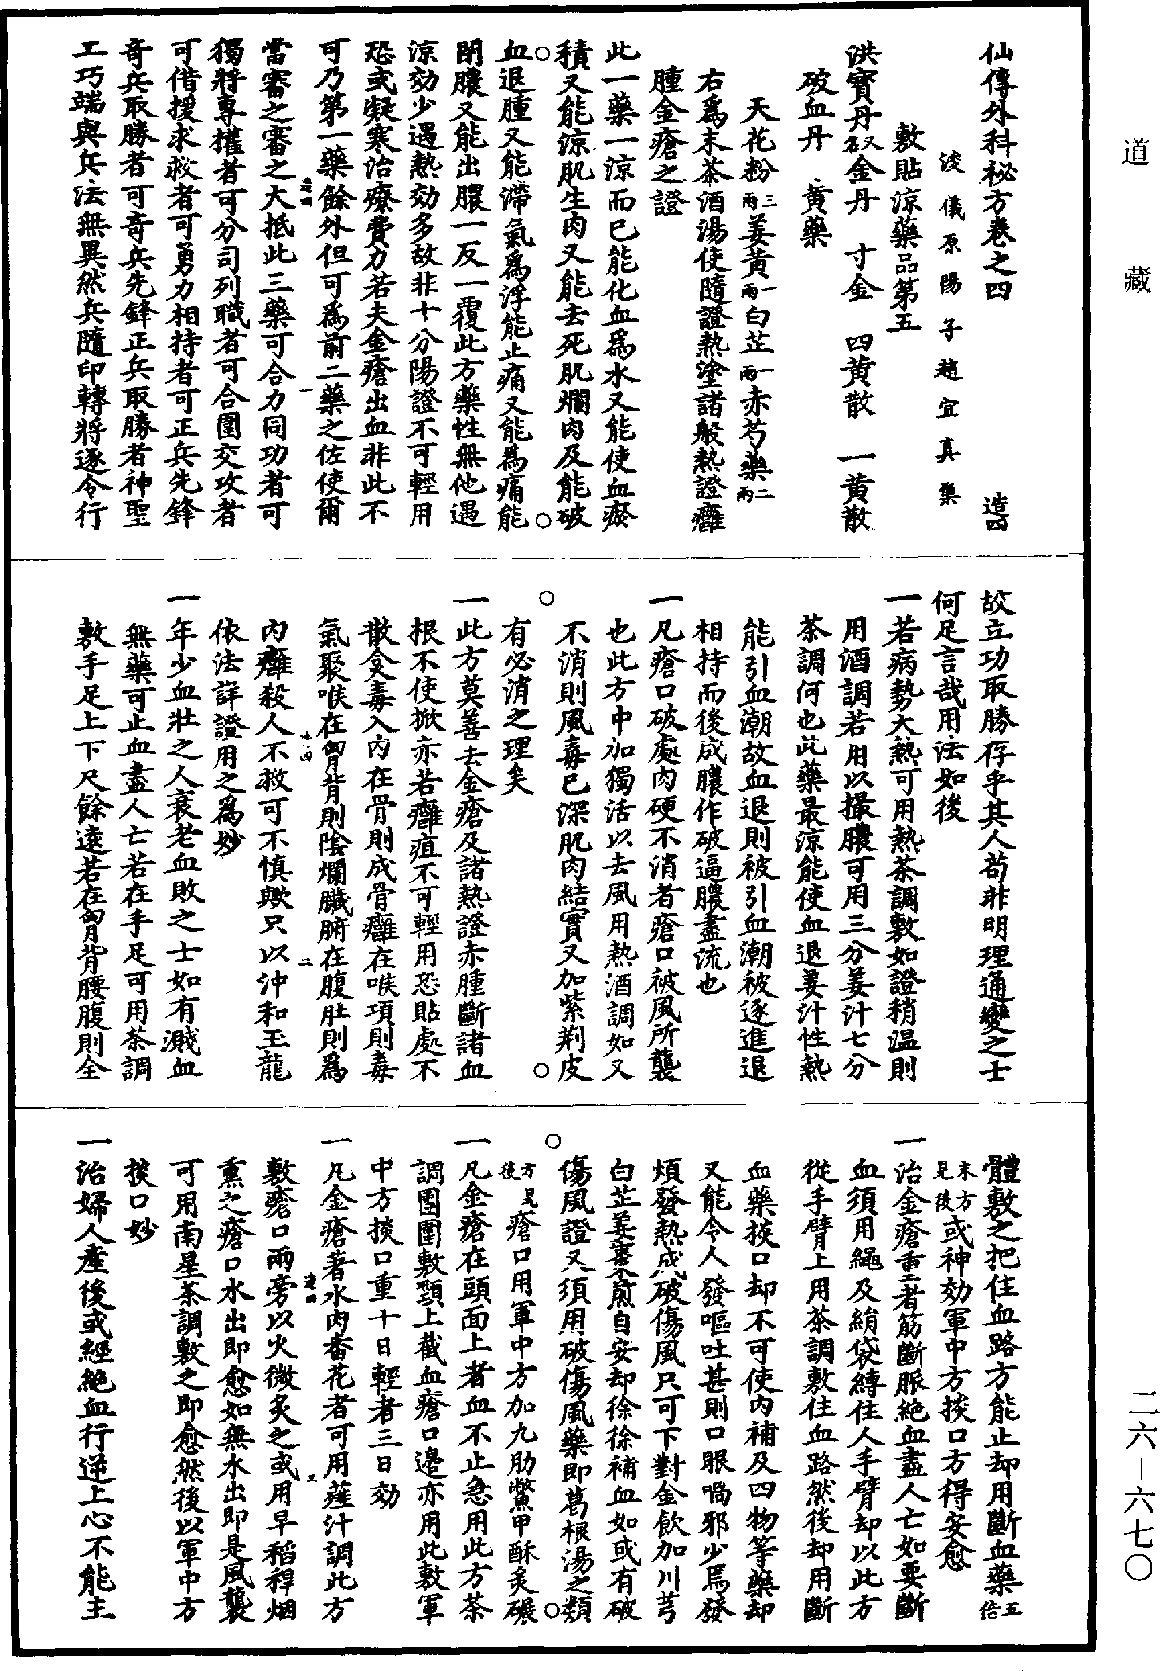 道藏
仙傳外科秘方卷之四 造四
浚儀原陽子趙宜真集
敷貼涼藥品第五
洪寶丹奴金丹 寸金 四黄散 一黄散
破血丹 黄藥
天花粉三兩姜黄一兩白芷一兩赤芍藥二兩
右爲末茶酒湯使隨證熱塗諸般熱證癰
腫金瘡之證
此一藥一涼而已能化血爲水又能使血瘀
積又能涼肌生肉又能去死肌爛肉及能破
血退腫又能滯氣爲浮能止痛又能爲痛能
閉膿又能出膿一反一覆此方藥性無他遇
涼効少遇熱効多故非十分陽證不可輕用
恐或凝寒治療費力若夫金瘡出血非此不
可乃第一藥餘外但可爲前二藥之佐使爾
當審之審之大抵此三藥可合力同功者可
獨將專權者可分司列職者可合圍交攻者
可借援求救者可勇力相持者可正兵先鋒
奇兵取勝者可奇兵先鋒正兵取勝者神聖
工巧端與兵法無異然兵隨印轉將逐令行
故立功取勝存乎其人苟非明理通變之士
何足言哉用法如後
一若病勢大熱可用熱茶調敷如證稍温則
用酒調若用以撮膿可用三分姜汁七分
茶調何也此藥最涼能使血退姜汁性熱
能引血潮故血退則被引血潮被逐進退
相持而後成膿作破逼膿盡流也
一凡瘡口破處肉硬不消者瘡口被風所襲
也此方中加獨活以去風用熱酒調如又
不消則風毒已深肌肉結實又加紫荆皮
有必消之理矣
一此方莫善去金瘡及諸熱證赤腫斷諸血
根不使掀亦若癰疽不可輕用恐貼處不
散奁毒入内在骨則成骨癰在喉項則毒
氣聚喉在胷背則陰爛臟腑在腹肚則爲
内癰殺人不救可不慎歟只以沖和玉龍
依法詳證用之爲妙
一年少血壯之人衰老血敗之士如有濺血
無藥可止血盡人亡若在手足可用茶調
敷手足上下尺餘遠若在胷背腰腹則全
體敷之把住血路方能止却用斷血藥五倍
末方見後或神効軍中方掞口方得安愈
一治金瘡重者筋斷脈絶血盡人亡如要斷
血須用繩及絹袋縛住人手臂却以此方
從手臂上用茶調敷住血路然後却用斷
血藥掞口却不可使内補及四物等藥却
又能令人發嘔吐甚則口眼喎邪少焉發
煩發熱成破傷風只可下對金飲加川芎
白芷姜棗煎自安却徐徐補血如或有破
傷風證又須用破傷風藥即葛根湯之類
方見後瘡口用軍中方加九肋鱉甲酥炙碾
一凡金瘡在頭面上者血不止急用此方茶
調團圍敷頸上截血瘡口邊亦用此敷軍
中方掞口重十日輕者三日効
一凡金瘡著水肉番花者可用薤汁調此方
敷瘡口兩旁以火微炙之或用早稻稈烟
熏之瘡口水出即愈如無水出即是風襲
可用南星茶調敷之即愈然後以軍中方
掞口妙
一治婦人産後或經絶血行逆上心不能主
二六－六七〇